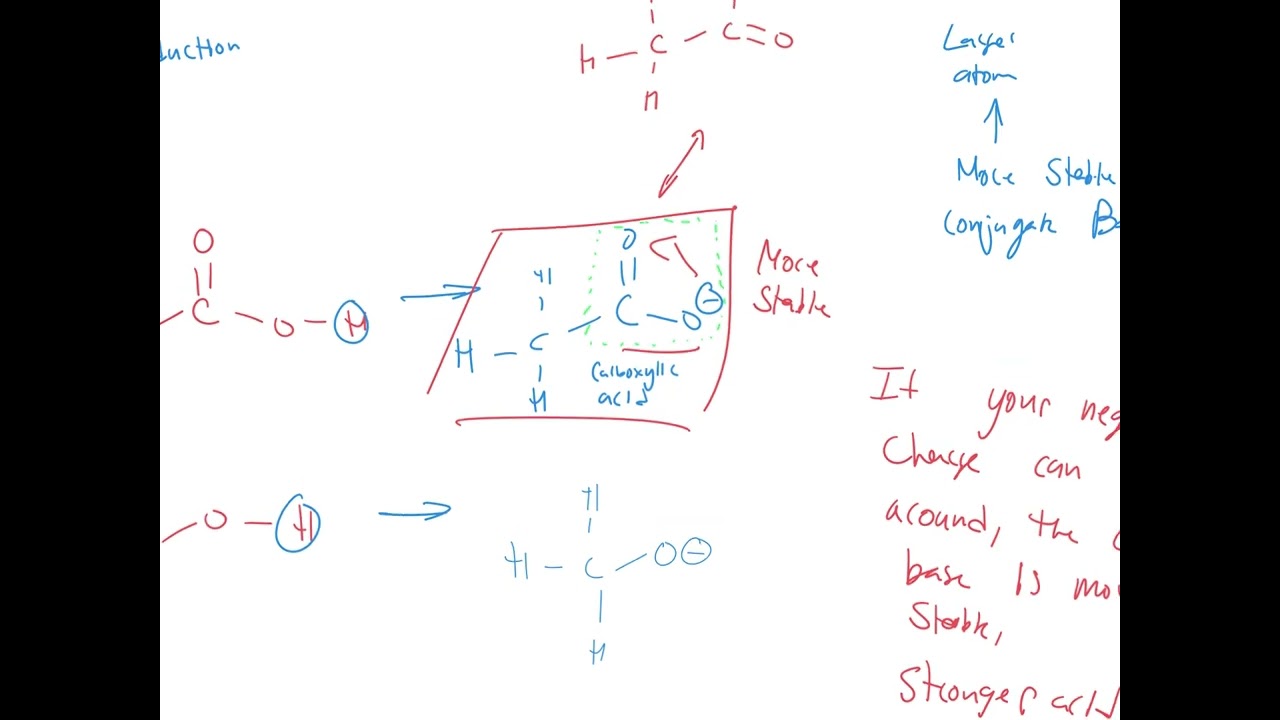 uction
H — C — C = O
H
Larger
atom
More Stable
Conjugate B
O
C
O — H
O
H
C
O ⊖
H — C
H
Carboxylic
acid
More
Stable
If your neg
Charge can
around, the
base is mo
Stable,
Stronger acid
O — H
H
H — C
O ⊖
H